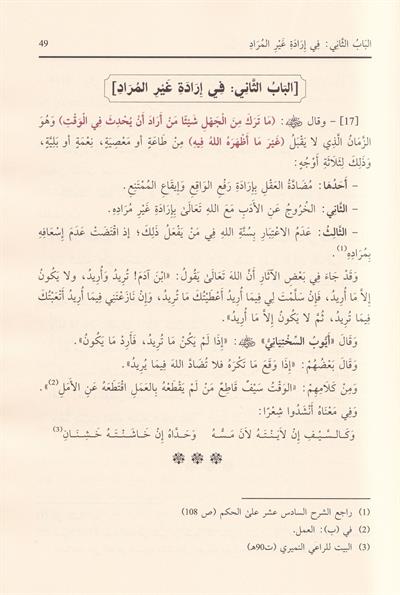 البَابُ الثَّانِي: فِي إِرَادَةِ غَيْرِ المُرَادِ 49
[البَابُ الثَّانِي: فِي إِرَادَةِ غَيْرِ المُرَادِ]
[17] - وقال ﷺ: (مَا تَرَكَ مِنَ الْجَهْلِ شَيْئًا مَنْ أَرَادَ أَنْ يُحْدِثَ فِي الْوَقْتِ) وَهُوَ
الزَّمَانُ الَّذِي لا يَقْبَلُ (غَيْرَ مَا أَظْهَرَهُ اللهُ فِيهِ) مِنْ طَاعَةٍ أو مَعْصِيَةٍ، نِعْمَةٍ أو بَلِيَّةٍ،
وَذَلِكَ لِثَلَاثَةِ أَوْجُهٍ:
- أَحَدُهَا: مُضَادَّةُ العَقْلِ بِإِرَادَةِ رَفْعِ الوَاقِعِ وَإِيقَاعِ المُمْتَنِعِ.
- الثَّانِي: الخُرُوجُ عَنِ الأَدَبِ مَعَ اللهِ تَعَالَىٰ بِإِرَادَةِ غَيْرِ مُرَادِهِ.
- الثَّالِثُ: عَدَمُ الاعْتِبَارِ بِسُنَّةِ اللهِ فِي مَنْ يَفْعَلُ ذَلِكَ؛ إذ اقْتَضَتْ عَدَمَ إِسْعَافِهِ
بِمُرَادِهِ(1).
وَقَدْ جَاءَ فِي بَعْضِ الآثَارِ أَنَّ اللهَ تَعَالَىٰ يَقُولُ: «ابْنَ آدَمَ! تُرِيدُ وَأُرِيدُ، ولا يَكُونُ
إِلاَّ مَا أُرِيدُ، فَإِنْ سَلَّمْتَ لِي فِيمَا أُرِيدُ أَعْطَيْتُكَ مَا تُرِيدُ، وَإِنْ نَازَعْتَنِي فِيمَا أُرِيدُ أَتْعَبْتُكَ
فِيمَا تُرِيدُ، ثُمَّ لا يَكُونُ إِلاَّ مَا أُرِيدُ».
وَقَالَ «أَيُّوبُ السِّخْتِيَانِيُّ»: «إِذَا لَمْ يَكُنْ مَا تُرِيدُ، فَأَرِدْ مَا يَكُونُ».
وَقَالَ بَعْضُهُمْ: «إِذَا وَقَعَ مَا تَكْرَهُ فلا تُضَادَّ اللهَ فِيمَا يُرِيدُ».
وَمِنْ كَلامِهِمْ: «الوَقْتُ سَيْفٌ قَاطِعٌ مَنْ لَمْ يَقْطَعْهُ بِالعَمَلِ اقْتَطَعَهُ عَنِ الأَمَلِ(2)».
وَفِي مَعْنَاهُ أَنْشَدُوا شِعْرًا:
وَكَالسَّيْفِ إِنْ لاَيَنْتَهُ لاَنَ مَسُّهُ وَحَدَّاهُ إِنْ خَاشَنْتَهُ خَشِنَانِ(3)
(1) راجع الشرح السادس عشر علىٰ الحكم (ص 108)
(2) في (ب): العمل.
(3) البيت للراعي النميري (ت90هـ)